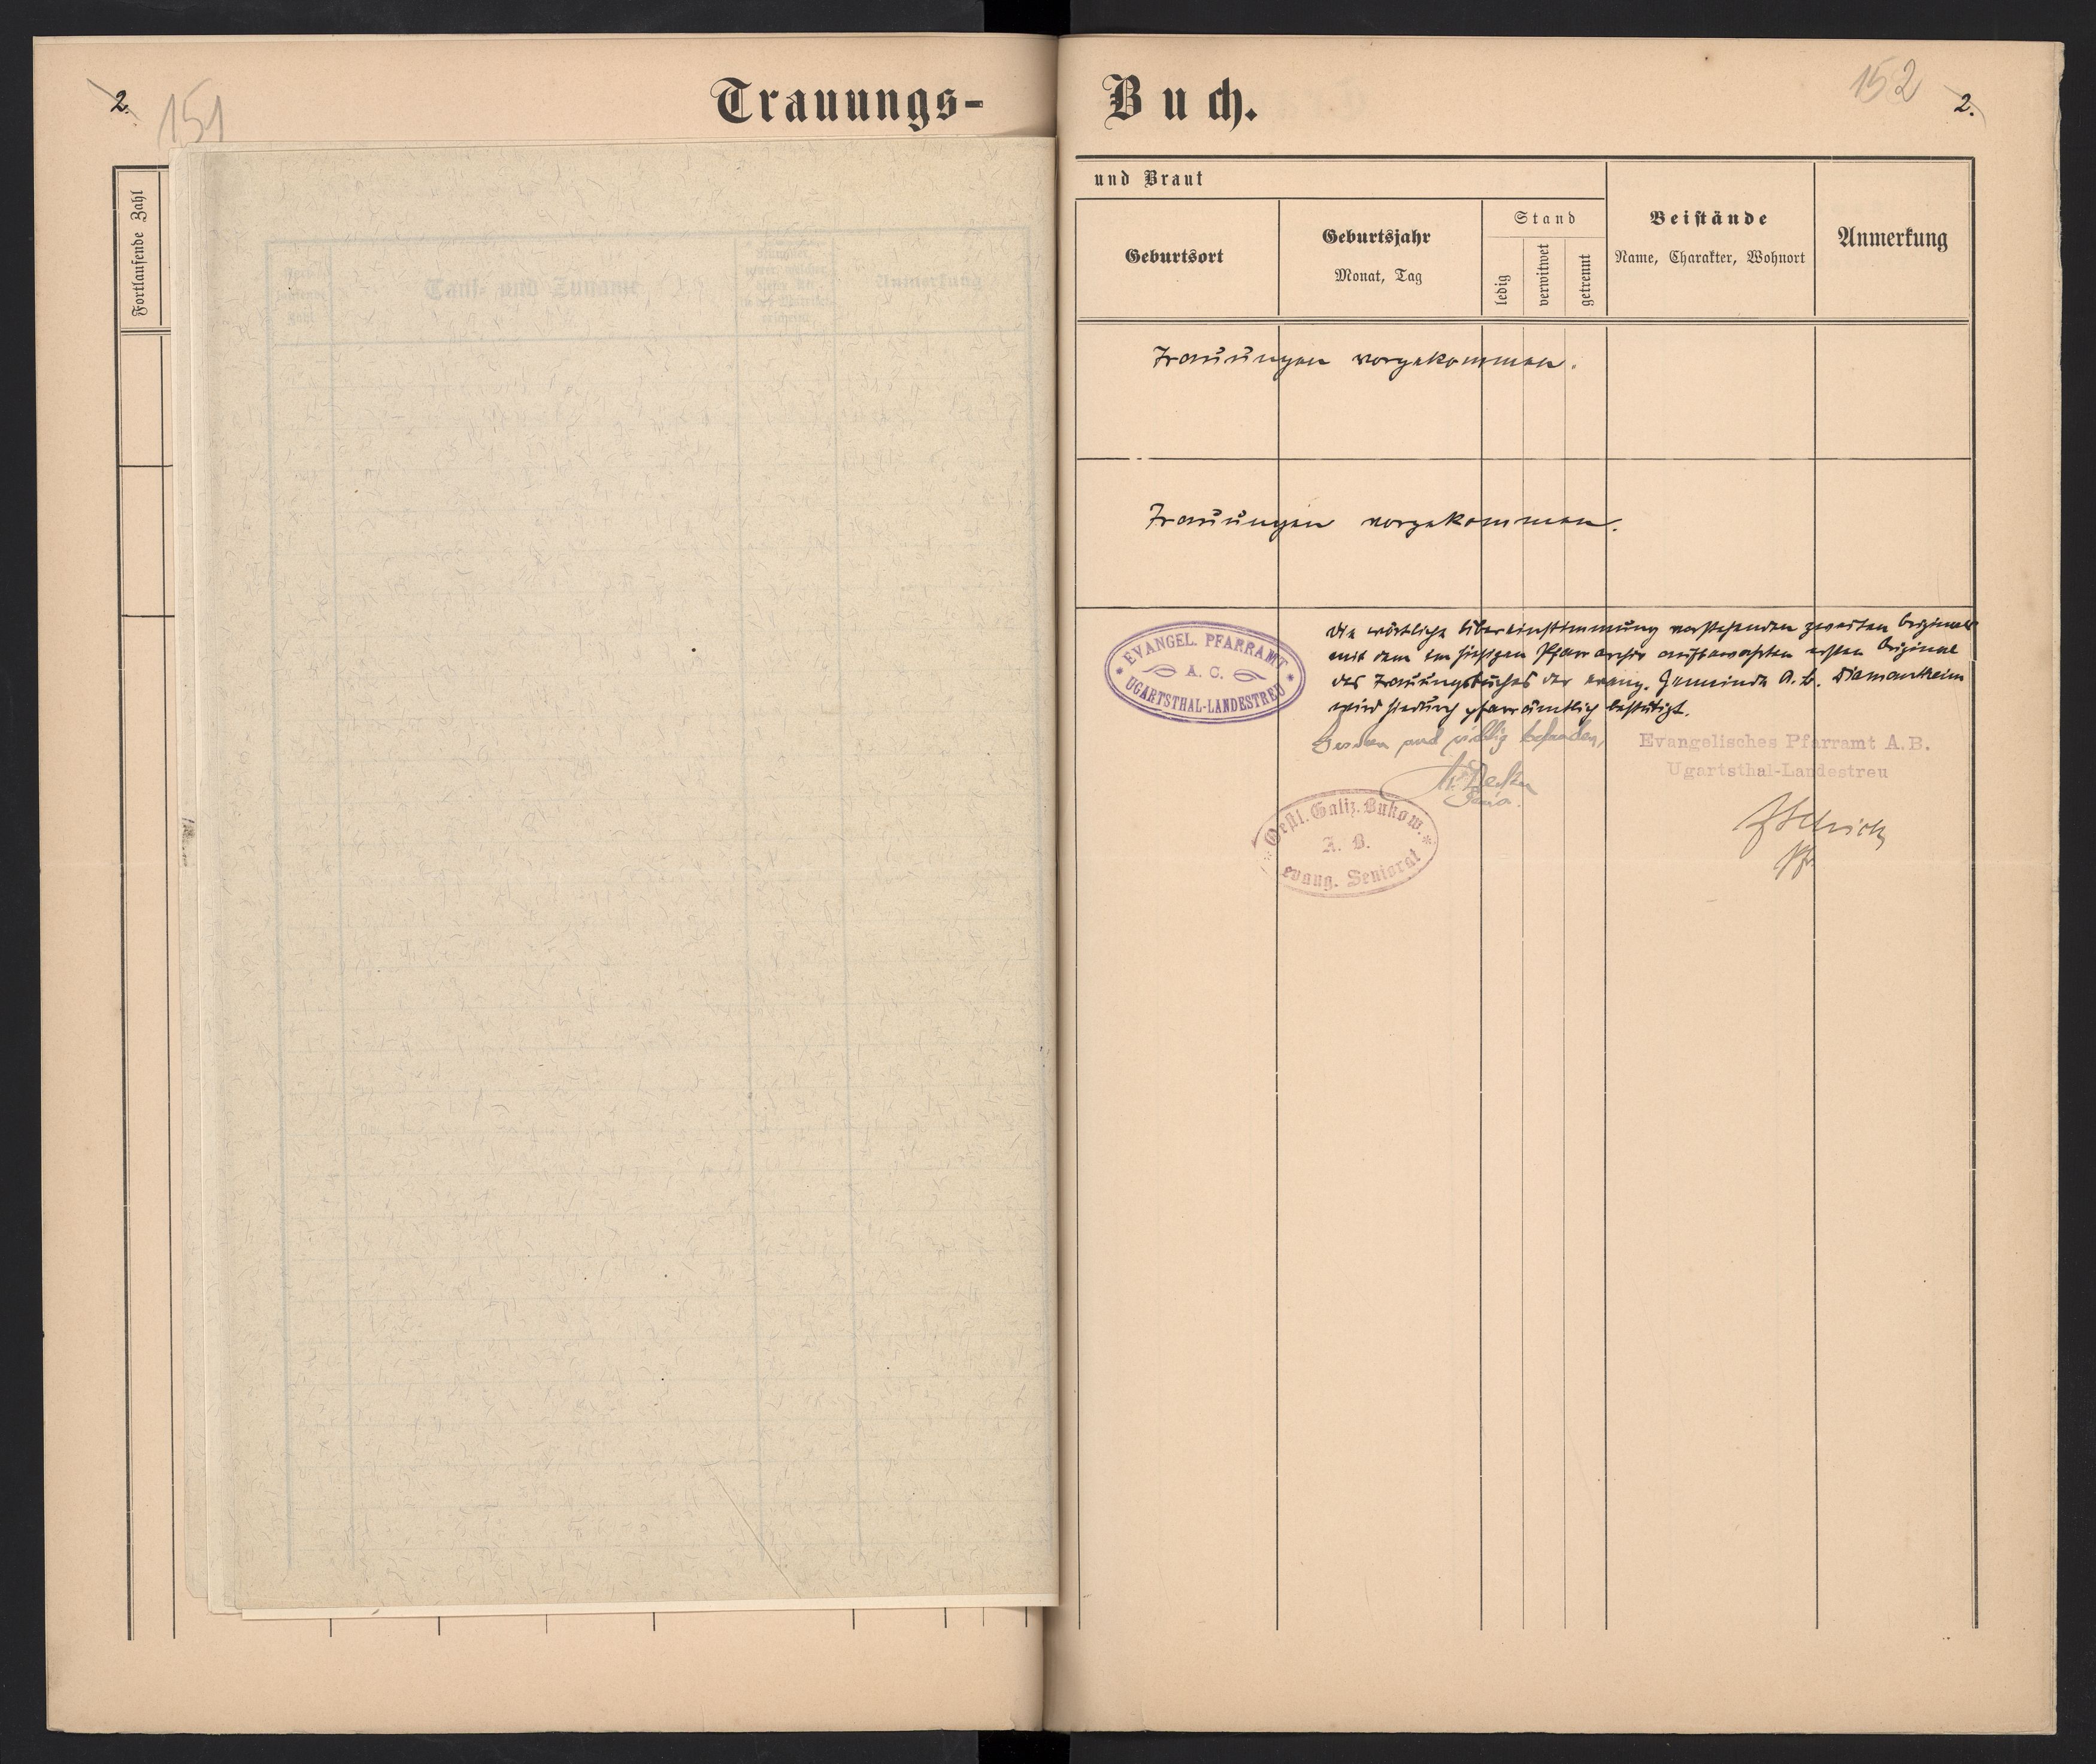 2.
151
Trauungs-
Buch.
152
2.
Fortlaufende Zahl
Tauf- und Zuname
Anmerkung
und Braut
Geburtsort
Geburtsjahr
Monat, Tag
Stand
ledig
verwitwet
getrennt
Beistände
Name, Charakter, Wohnort
Anmerkung
Trauungen vorgekommen.
Trauungen vorgekommen.
Die wörtliche Übereinstimmung vorstehenden zweiten Originals
mit dem im hiesigen Pfarrarchiv aufbewahrten ersten Original
des Trauungsbuches der evang. Gemeinde A. B. Diamantheim
wird hiedurch pfarrämtlich bestätigt.
EVANGEL. PFARRAMT
A. C.
UGARTSTHAL-LANDESTREU
und richtig befunden,
Evangelisches Pfarramt A.B.
Ugartsthal-Landestreu
Oestl. Galiz. Bukow.
A. B.
evang. Seniorat
Pfr.